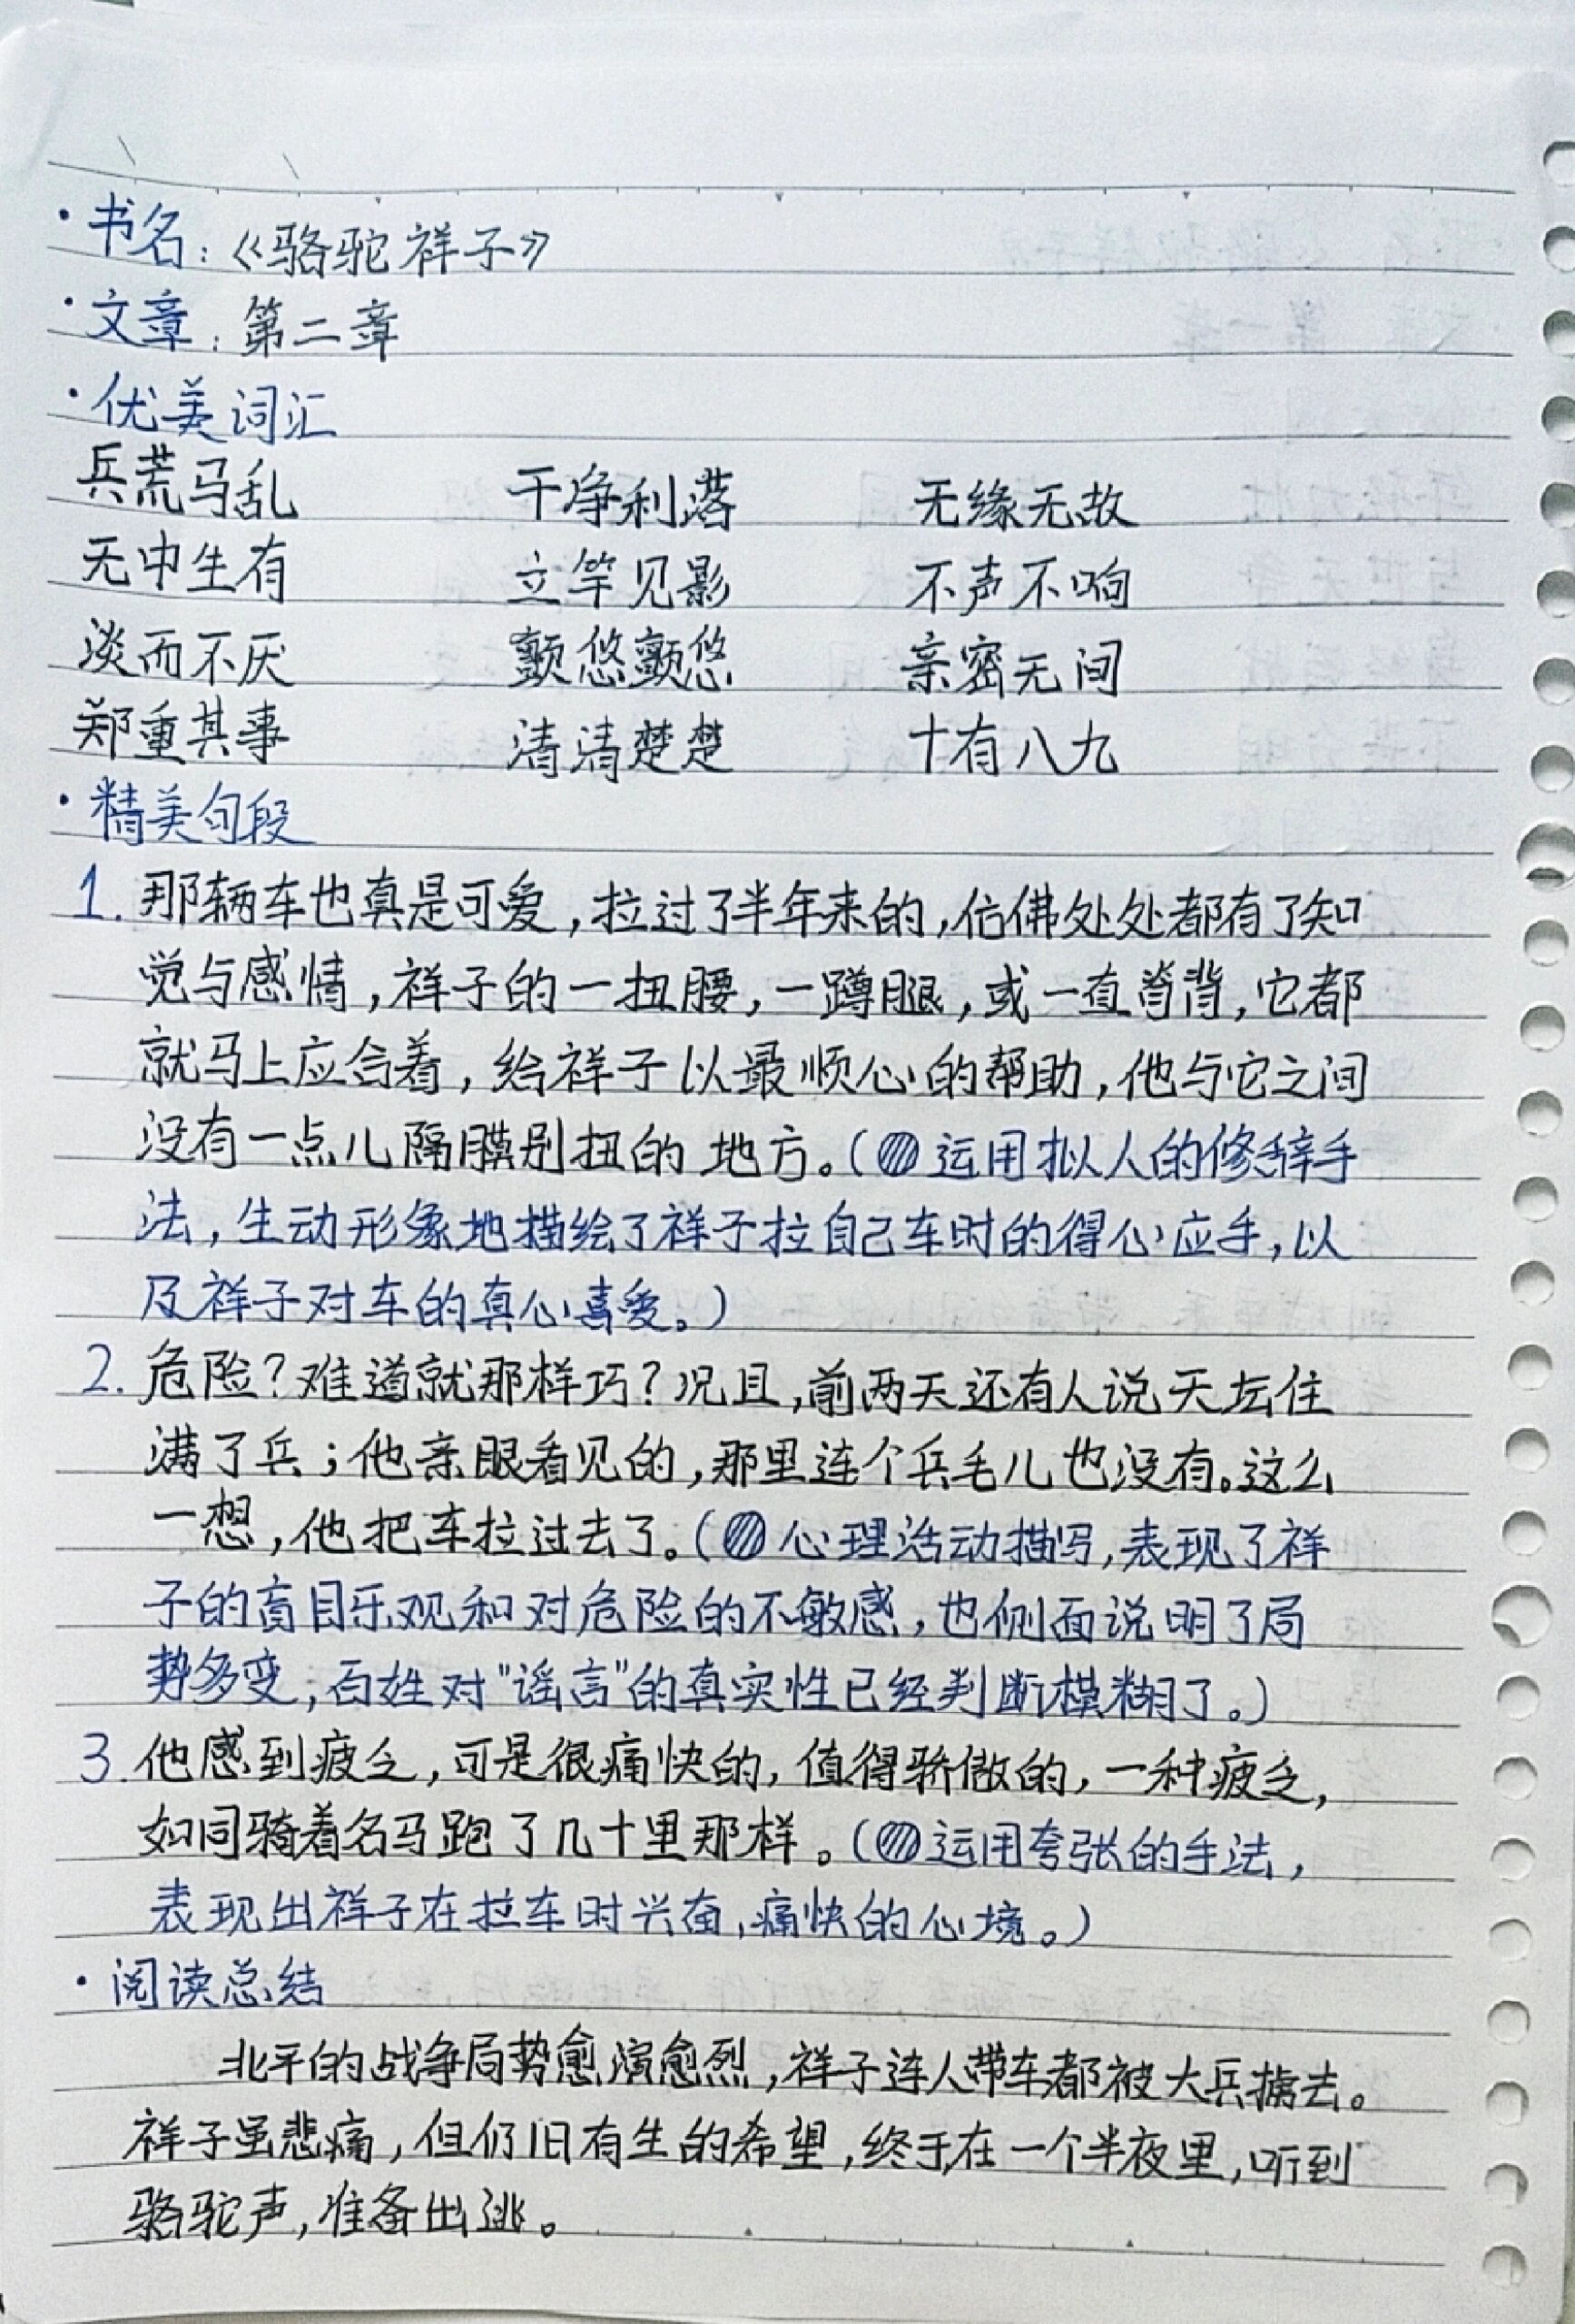 ·书名：《骆驼祥子》
·文章：第二章
·优美词汇
兵荒马乱 干净利落 无缘无故
无中生有 立竿见影 不声不响
淡而不厌 颤悠颤悠 亲密无间
郑重其事 清清楚楚 十有八九
·精美句段
1. 那辆车也真是可爱，拉过了半年来的，仿佛处处都有了知
觉与感情，祥子的一扭腰，一蹲腿，或一直脊背，它都
就马上应合着，给祥子以最顺心的帮助，他与它之间
没有一点儿隔膜别扭的地方。（运用拟人的修辞手
法，生动形象地描绘了祥子拉自己车时的得心应手，以
及祥子对车的真心喜爱。）
2. 危险？难道就那样巧？况且，前两天还有人说天坛住
满了兵；他亲眼看见的，那里连个兵毛儿也没有。这么
一想，他把车拉过去了。（心理活动描写，表现了祥
子的盲目乐观和对危险的不敏感，也侧面说明了局
势多变，百姓对"谣言"的真实性已经判断模糊了。）
3. 他感到疲乏，可是很痛快的，值得骄傲的，一种疲乏，
如同骑着名马跑了几十里那样。（运用夸张的手法，
表现出祥子在拉车时兴奋，痛快的心境。）
·阅读总结
北平的战争局势愈演愈烈，祥子连人带车都被大兵掳去。
祥子虽悲痛，但仍旧有生的希望，终于在一个半夜里，听到
骆驼声，准备出逃。